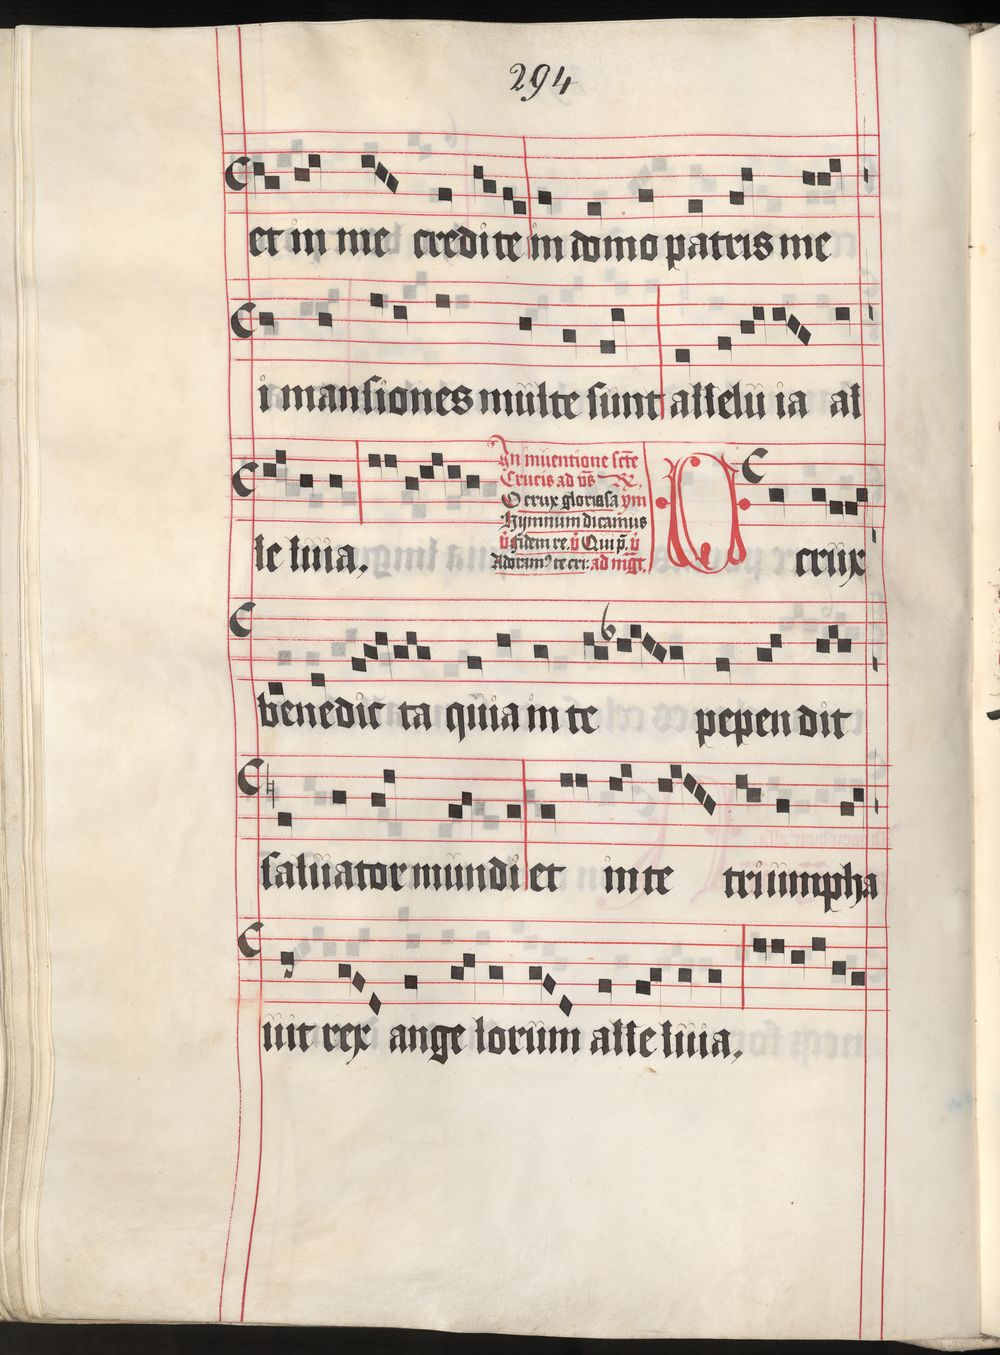 294
et in me credite in domo patris me
i mansiones multe sunt allelu ia al
In inuentione scte
Crucis ad vs R.
O crux gloriosa ym
Hymnum dicamus
v fidem re. v Qui p. v
Adoram9 te cri: ad mgt.
le luia. O crux
benedic ta quia in te pependit
saluator mundi et in te triumpha
uit rex ange lorum alle luia.